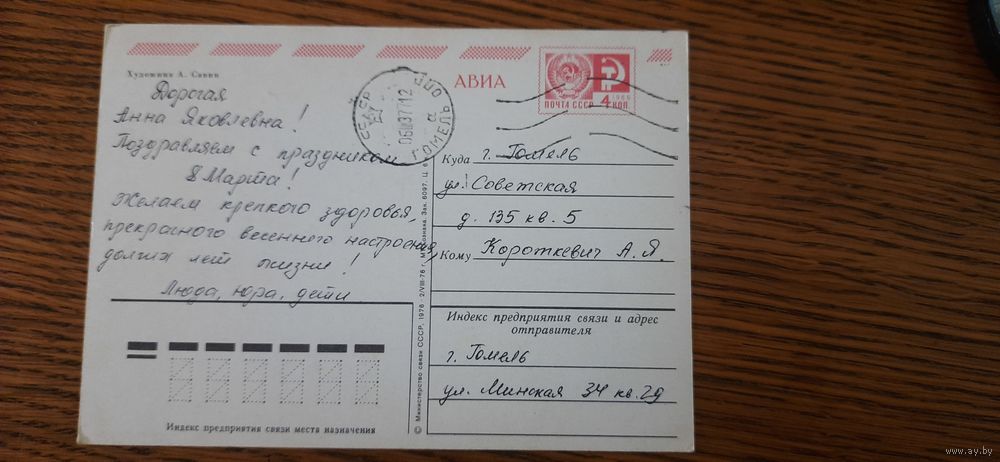 Художник А. Савин
АВИА
ПОЧТА СССР 4 КОП
1966
Дорогая
Анна Яковлевна!
Поздравляем с праздником
8 Марта!
Желаем крепкого здоровья,
прекрасного весеннего настроения,
долгих лет жизни!
Люда, Юра, дети
ГОМЕЛЬ
Куда г. Гомель
ул. Советская
д. 135 кв. 5
Кому Короткевич А. Я.
Индекс предприятия связи и адрес
отправителя
г. Гомель
ул. Минская 34 кв. 29
Индекс предприятия связи места назначения
© Министерство связи СССР, 1976 2/VIII-76 г. Зак. 6097. Ц.
www.ay.by